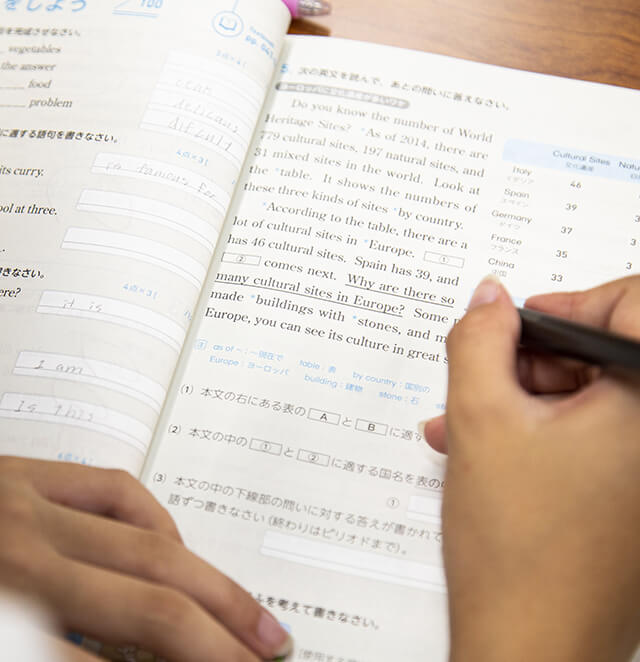 をしよう
100
を完成させなさい。
3点×4
vegetables
the answer
food
problem
clean
difficult
に適する語句を書きなさい。
4点×3
its curry.
is famous for
ool at three.
書きなさい。
4点×3
ere?
it is
I am
Is this
4点×
5. 次の英文を読んで，あとの問いに答えなさい。
Do you know the number of World
Heritage Sites? *As of 2014, there are
779 cultural sites, 197 natural sites, and
31 mixed sites in the world. Look at
the *table. It shows the numbers of
these three kinds of sites *by country.
*According to the table, there are a
lot of cultural sites in *Europe. ①
② has 46 cultural sites. Spain has 39, and
comes next. Why are there so
many cultural sites in Europe? Some
made *buildings with *stones, and
Europe, you can see its culture in great
Cultural Sites
文化遺産
Italy
イタリア
46
Spain
スペイン
39
Germany
ドイツ
37
France
フランス
35
China
中国
33
as of ～：～現在で table：表 by country：国別の
Europe：ヨーロッパ building：建物 stone：石
(1) 本文の右にある表の A と B に適す
(2) 本文の中の ① と ② に適する国名を表の中
①
(3) 本文の中の下線部の問いに対する答えが書かれて
語ずつ書きなさい（終わりはピリオドまで）。
を考えて書きなさい。